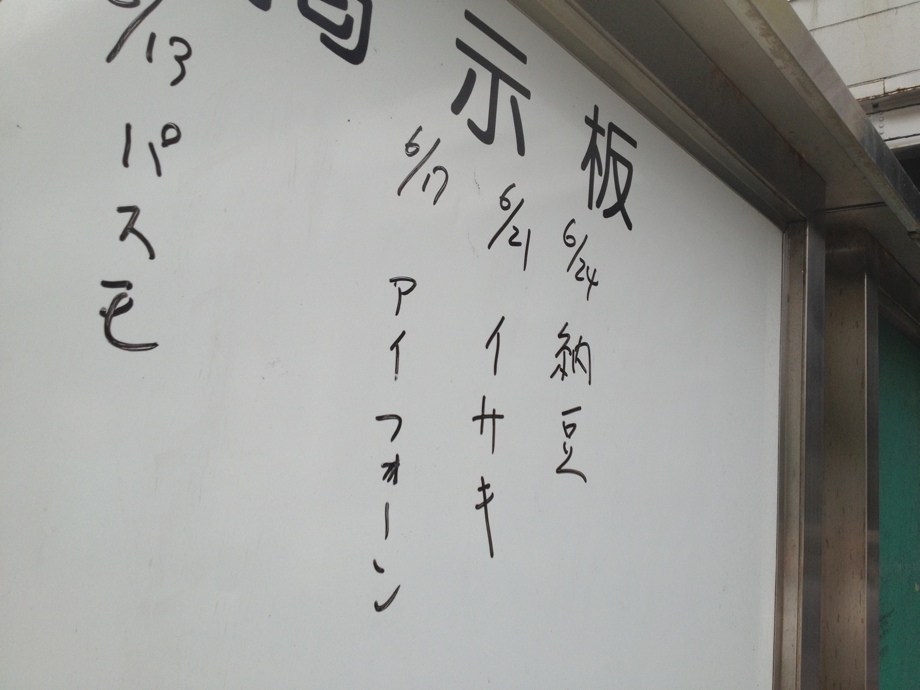 示板
6/24 納豆
6/21 イサキ
6/17 アイフォーン
/13 パスモ